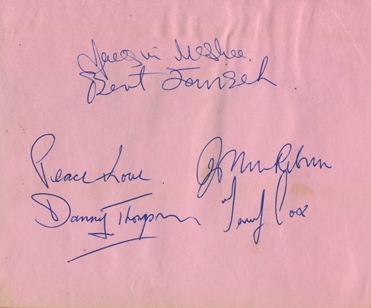 Jacqui McShee
Bert Jansch
Peace Love John Renbourn
Danny Thompson Terry Cox